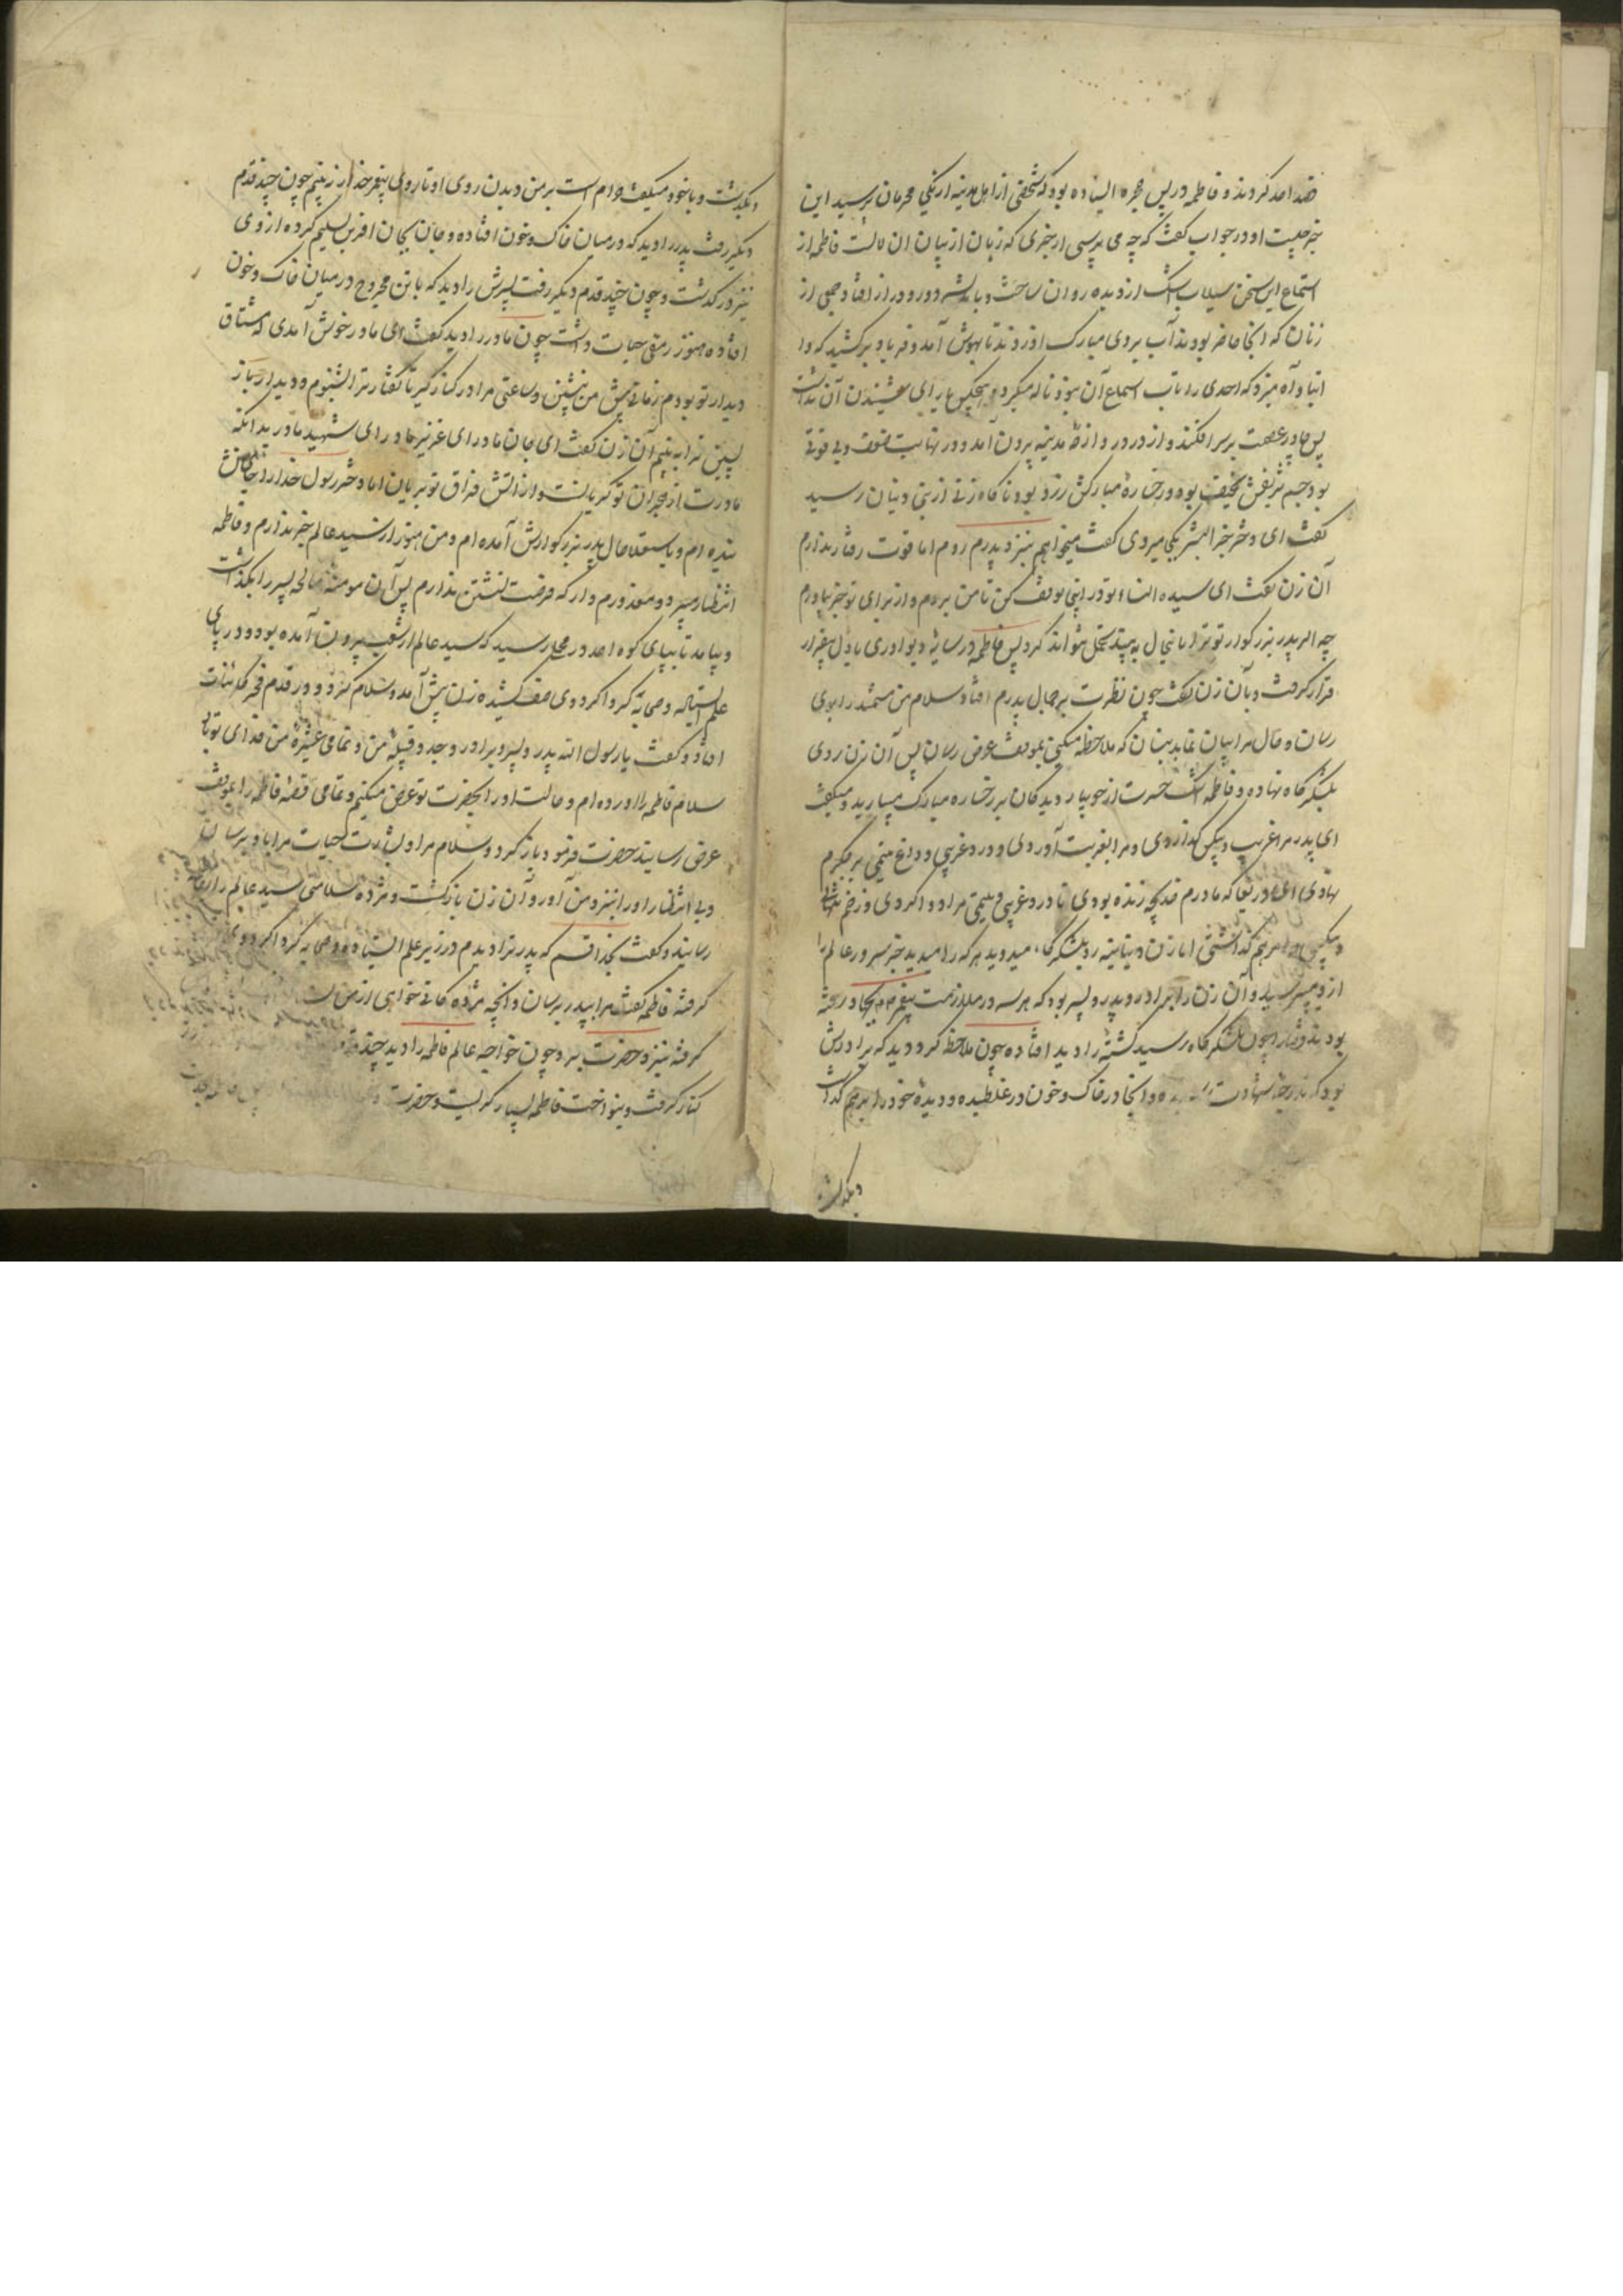 قصد احد کردند و فاطمه در پس حجره ایستاده بود که شخصی از اهل مدینه از یکی محرمان پرسید این
خبر چیست او در جواب گفت که چه می پرسی از خبری که زبان از بیان آن لالست فاطمه از
استماع این سخن سیلاب اشک از دیده روان ساخت و باندیشه دور و دراز افتاد جمعی از
زنان که آنجا حاضر بودند آب بر روی مبارک او زدند تا بهوش آمد و فریاد برکشید که وا
ابتا و آه میزد که احدی را تاب استماع آن نبود ناله میکرد و هیچکس را یارای شنیدن آن نداشت
پس چادر عصمت بر سر افکند و از در دروازه مدینه بیرون آمد و در نهایت ضعف و بی قوتی
بود جسم شریفش نحیف بود و رخساره مبارکش زرد بود ناگاه زنی از بنی دینان رسید
گفت ای دختر خیر البشر بکجا میروی گفت میخواهم بنزد پدرم روم اما قوت رفتار ندارم
آن زن گفت ای سیدة النساء تو در اینجا توقف کن تا من بروم و از برای تو خبر بیاورم
چه اگر پدر بزرگوار تو ترا باینحال به بیند تحمل نتواند کرد پس فاطمه در سایه دیواری با دل بیقرار
قرار گرفت و بآن زن گفت چون نظرت بر جمال پدرم افتاد سلام من مستمند را بوی
رسان و حال مرا بیان نما بدینسان که ملاحظه میکنی بموقف عرض رسان پس آن زن روی
بلشکرگاه نهاده و فاطمه اشک حسرت از جویبار دیدگان بر رخساره مبارک میبارید و میگفت
ای پدر مرا غریب و بیکس گذاردی و مرا بغربت آوردی و درد غریبی و داغ یتیمی بر جگرم
نهادی ای دریغا که مادرم خدیجه زنده بودی تا درد غریبی و یتیمی مرا دوا کردی و زخم تنهایی
و بیکسی مرا مرهم گذاشتی اما زن دینانیه رو بلشکرگاه میدوید هر که را میدید خبر سرور عالم را
از وی میپرسید و آن زن را برادر و پدر و پسر بود که هر سه در ملازمت پیغمبر بجهاد رفته
بودند قضا را چون بلشکرگاه رسید کشته را دید افتاده چون ملاحظه کرد دید که برادرش
بود که بدرجه شهادت رسیده و آنجا در خاک و خون در غلطیده و دیده خود را بر هم گذاشت
وبگذشت
وبگذشت و با خود میگفت حرام است بر من دیدن روی او تا روی پیغمبر خدا را نه بینم چون چند قدم
دیگر رفت پدر را دید که در میان خاک و خون افتاده و جان بجان آفرین تسلیم کرده از وی
نیز در گذشت و چون چند قدم دیگر رفت پسرش را دید که با تن مجروح در میان خاک و خون
افتاده هنوز رمقی حیات داشت چون مادر را دید گفت ای مادر خوش آمدی که مشتاق
دیدار تو بودم زمانی پیش من بنشین و ساعتی مرا در کنار گیر تا گفتار ترا بشنوم و دیدار باز
پسین ترا به بینم آن زن گفت ای جان مادر ای عزیز مادر ای شهید مادر بدانکه
مادرت از هجران تو گریانست و از آتش فراق تو بریان اما دختر رسول خدا را
ندیده ام و باستعلام حال پدر بزرگوارش آمده ام و من هنوز از سید عالم خبر ندارم و فاطمه
انتظار میبرد و معذورم دار که فرصت نشستن ندارم پس آن مومنه صالحه پسر را بگذاشت
و بیامد تا بپای کوه احد در محلی رسید که سید عالم از شعب بیرون آمده بود و در پای
علم ایستاده و صحابه گرداگرد وی صف کشیده زن پیش آمد و سلام کرد و در قدم فخر کاینات
افتاد و گفت یا رسول الله پدر و پسر و برادر و جد و قبیله من و تمامی عشیره من فدای تو باد
سلام فاطمه را آورده ام و حالت او را بحضرت تو عرض میکنم و تمامی قصه فاطمه را بموقف
عرض رسانید حضرت فرمود باز گرد و سلام مرا و بشارت حیات مرا باو برسان
و بی انتظار او را بنزد من آور و آن زن بازگشت و مژده سلامتی سید عالم را بفاطمه
رسانید و گفت بخدا قسم که پدر ترا دیدم در زیر علم ایستاده و صحابه گرداگرد وی
گرفته فاطمه گفت مرا بپدر برسان و آنچه مژدگانی خواهی از من
گرفته بنزد حضرت برد چون خواجه عالم فاطمه را دید چند قدم
کنار گرفت و بنواخت فاطمه بسیار گریست و حضرت